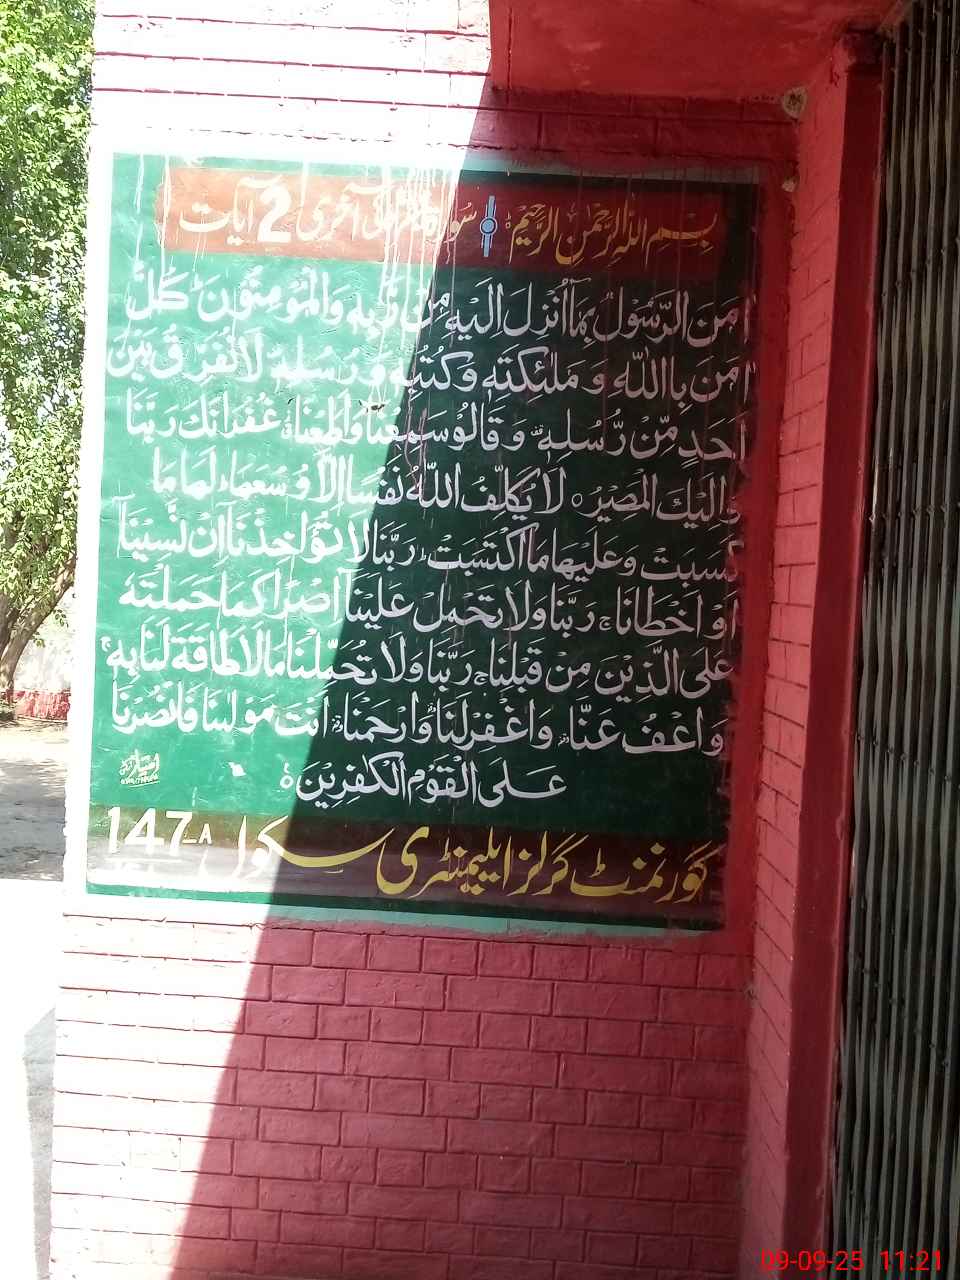 بسم الله الرحمن الرحيم سورۃ بقرہ کی آخری 2 آیات
اٰمَنَ الرَّسُوْلُ بِمَآ اُنْزِلَ اِلَيْهِ مِنْ رَّبِّهٖ وَالْمُؤْمِنُوْنَ كُلٌّ
اٰمَنَ بِاللّٰهِ وَ مَلٰٓئِكَتِهٖ وَكُتُبِهٖ وَ رُسُلِهٖ لَا نُفَرِّقُ بَيْنَ
اَحَدٍ مِّنْ رُّسُلِهٖ وَ قَالُوْا سَمِعْنَا وَاَطَعْنَا غُفْرَانَكَ رَبَّنَا
وَ اِلَيْكَ الْمَصِيْرُ ○ لَا يُكَلِّفُ اللّٰهُ نَفْسًا اِلَّا وُسْعَهَا لَهَا مَا
كَسَبَتْ وَعَلَيْهَا مَا اكْتَسَبَتْ ط رَبَّنَا لَا تُؤَاخِذْنَا اِنْ نَّسِيْنَآ
اَوْ اَخْطَاْنَا ج رَبَّنَا وَلَا تَحْمِلْ عَلَيْنَآ اِصْرًا كَمَا حَمَلْتَهٗ
عَلَى الَّذِيْنَ مِنْ قَبْلِنَا ج رَبَّنَا وَلَا تُحَمِّلْنَا مَا لَا طَاقَةَ لَنَا بِهٖ ج
وَاعْفُ عَنَّا وَاغْفِرْ لَنَا وَارْحَمْنَا اَنْتَ مَوْلٰىنَا فَانْصُرْنَا
عَلَى الْقَوْمِ الْكٰفِرِيْنَ ○
گورنمنٹ گرلز ایلیمنٹری سکول 147-A
09-09-25 11:21